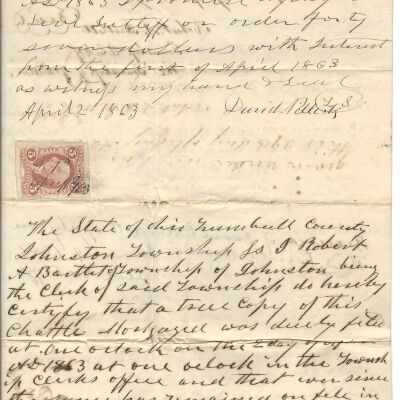 AD 1863 I promise to pay to
Levi Sutliff or order forty
seven dollars with Interest
from the first of April 1863
as witness my hand & Seal
April 2 1863 David
The State of Ohio Trumbull County
Johnston Township Ss I Robert
A Bartlett Township of Johnston being
the Clerk of said Township do hereby
certify that a true Copy of this
Chattle Mortgaged was duely filed
at One oclock on the 2 day of
AD 1863 at one oclock in the Townsh
ip clerks office and that ever since
the same has remained on file in